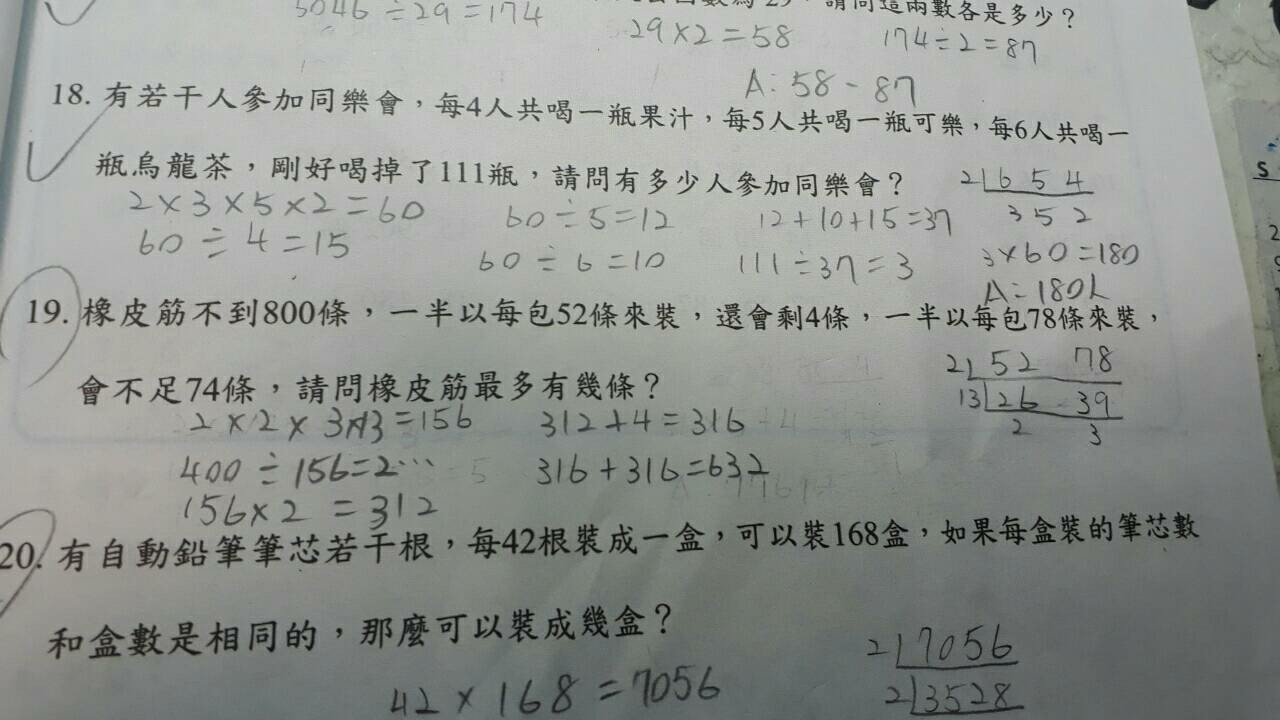 5046÷29=174
請問這兩數各是多少？
29×2=58 174÷2=87
A:58-87
18. 有若干人參加同樂會，每4人共喝一瓶果汁，每5人共喝一瓶可樂，每6人共喝一
瓶烏龍茶，剛好喝掉了111瓶，請問有多少人參加同樂會？
2 6 5 4
3 5 2
2×3×5×2=60 60÷5=12 12+10+15=37
60÷4=15 60÷6=10 111÷37=3 3×60=180
A=180人
19. 橡皮筋不到800條，一半以每包52條來裝，還會剩4條，一半以每包78條來裝，
會不足74條，請問橡皮筋最多有幾條？
2 52 78
13 26 39
2 3
2×2×3×13=156 312+4=316
400÷156=2… 316+316=632
156×2=312
20. 有自動鉛筆筆芯若干根，每42根裝成一盒，可以裝168盒，如果每盒裝的筆芯數
和盒數是相同的，那麼可以裝成幾盒？
42×168=7056
2 7056
2 3528